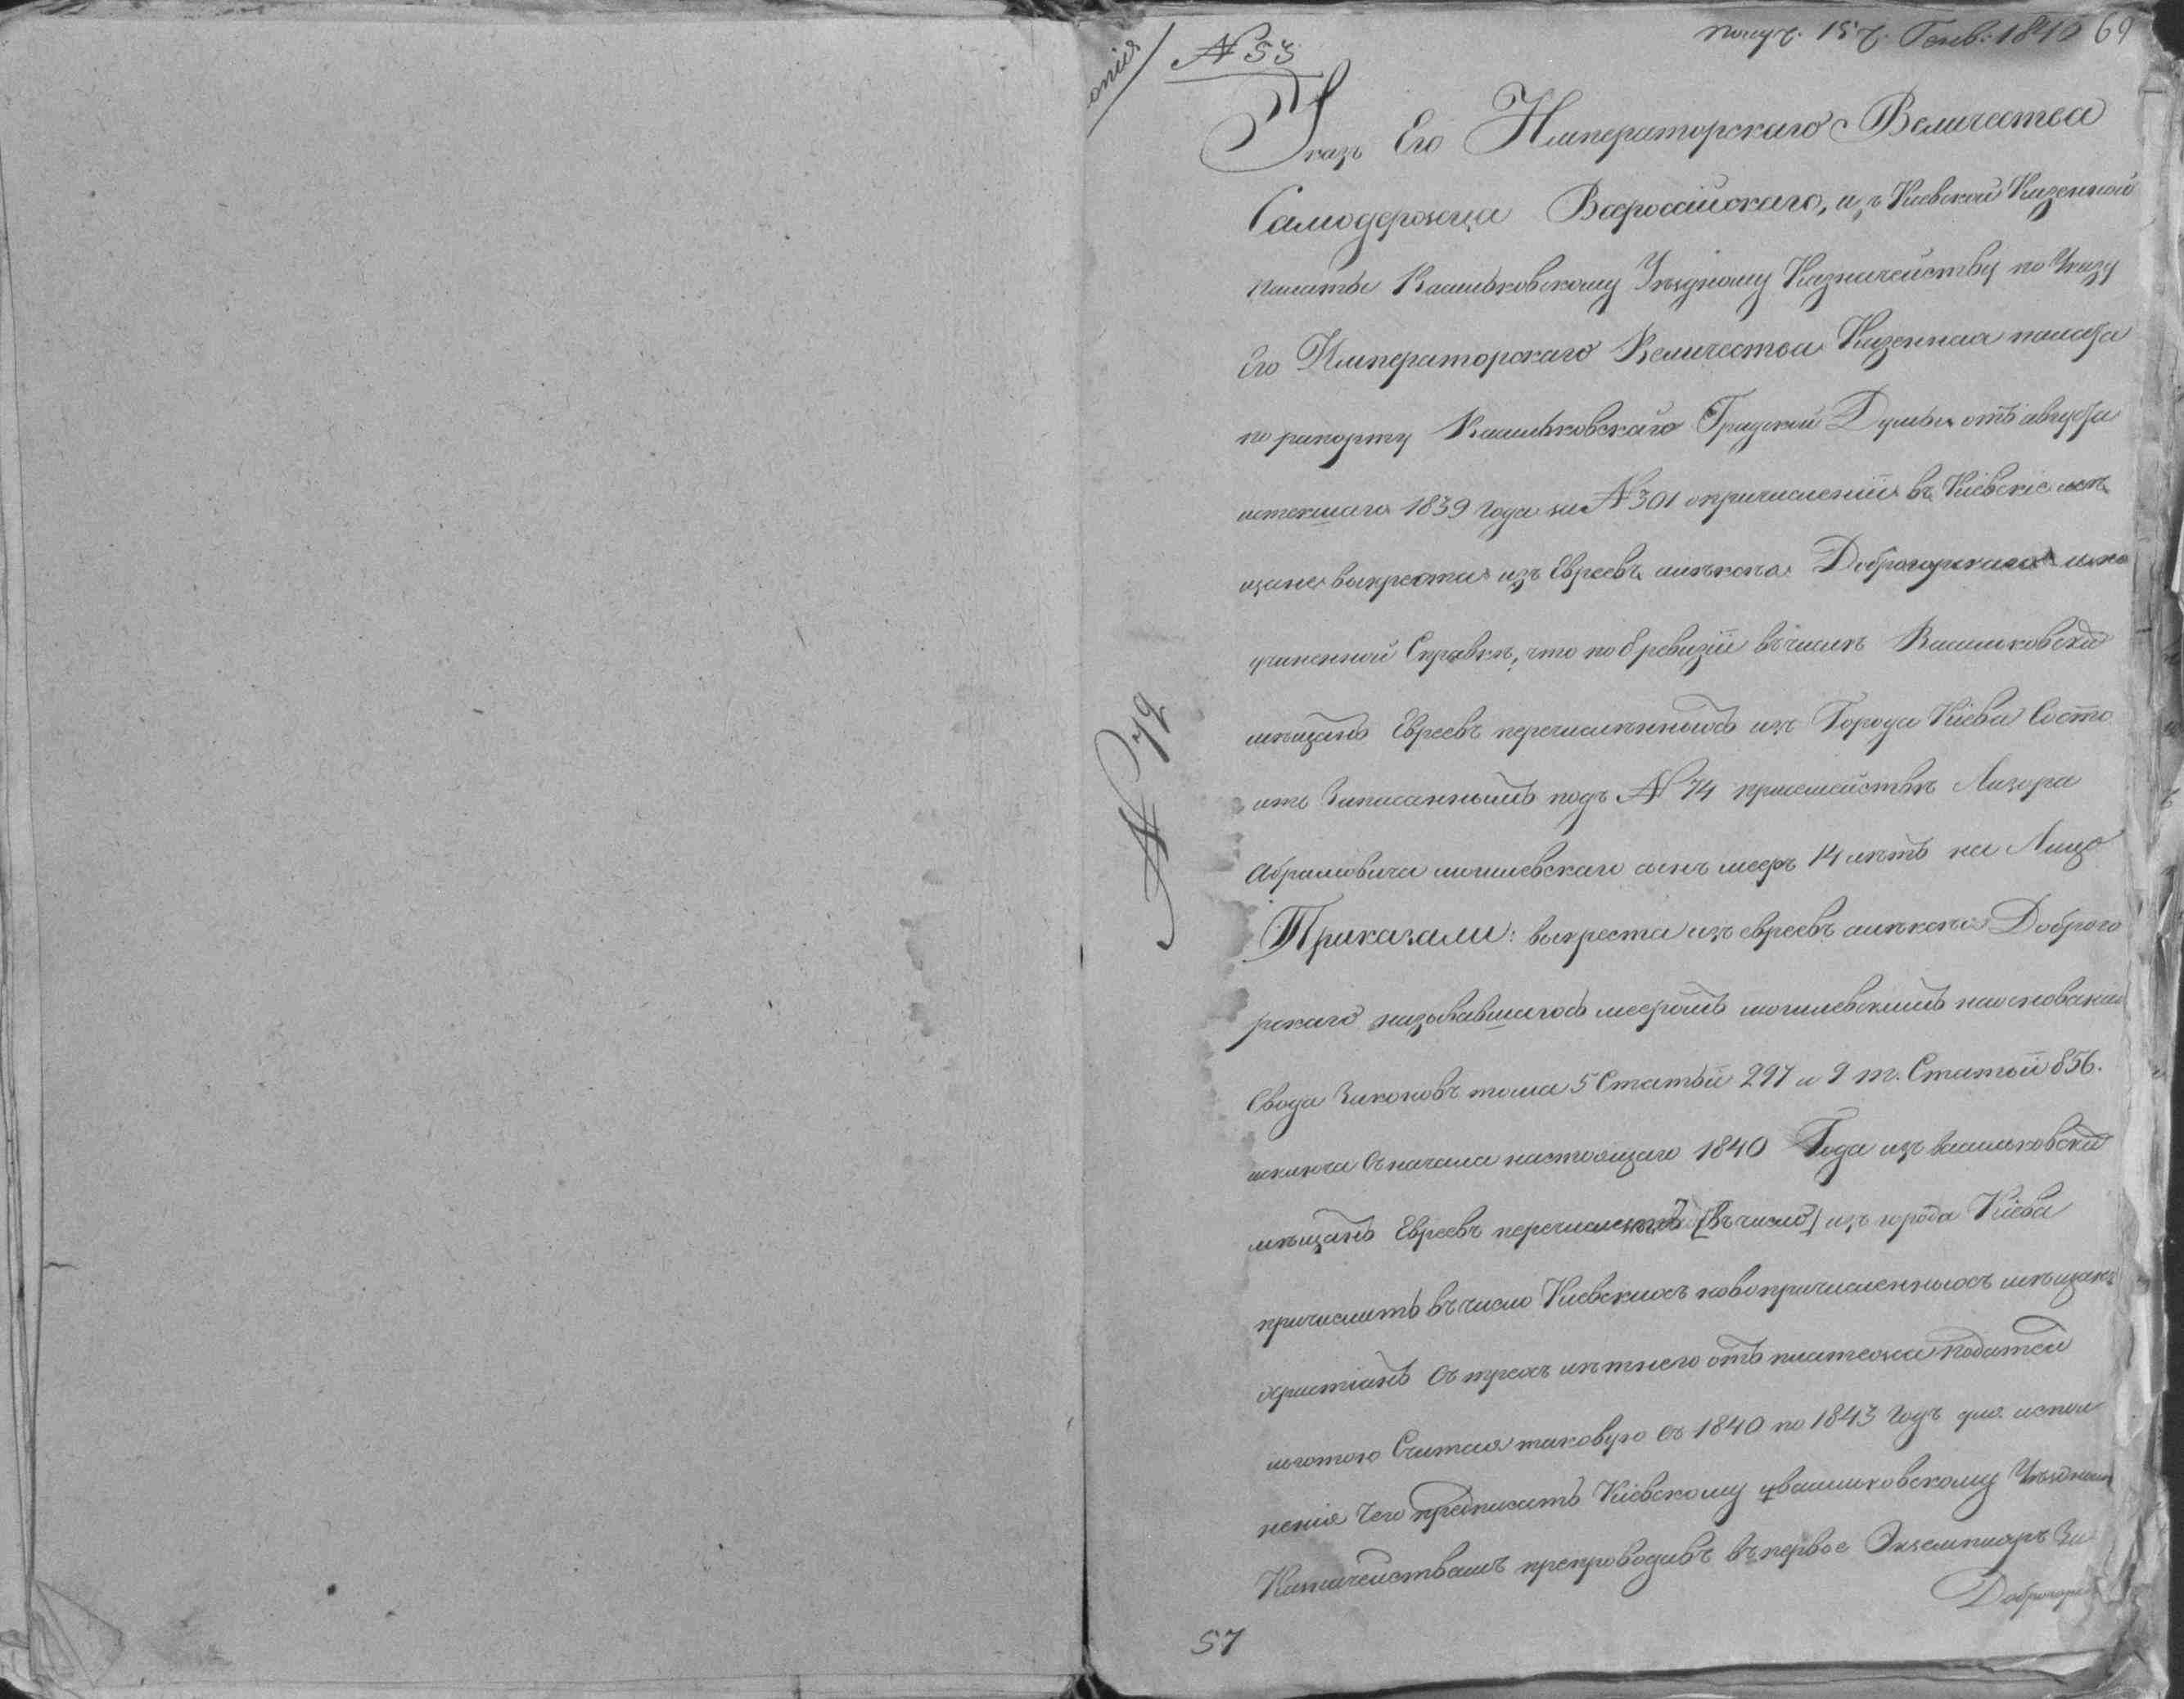 получ. 15 Генв: 1840 69
№ 53
опия
Указъ Его Императорскаго Величества
Самодержца Всероссійскаго, изъ Кіевской Казенной
палаты Васильковскому Уѣздному Казначейству по Указу
Его Императорскаго Величества Казенная палата
по рапорту Васильковской Градской Думы отъ августа
истекшаго 1839 Года за № 301 о причисленіи въ Кіевскіе мѣ
щане выкреста изъ Евреевъ Алексѣя Доброгорскаго и по
учиненной Справкѣ, что по 8 ревизіи въ числѣ Васильковскихъ
мѣщанъ Евреевъ перечисленныхъ изъ Города Кіева Состо
итъ Записаннымъ подъ № 74 при семействѣ Лизора
Абрамовича могилевскаго сынъ меер 14 лѣтъ на Лицо
Приказали: выкреста изъ евреевъ алексѣя Доброго
рскаго называвшагося мееромъ могилевскимъ на основаніи
Свода Законовъ тома 5 Статьи 297 и 9 т. Статьи 856.
исключа съ начала настоящаго 1840 Года изъ васильковскихъ
мѣщанъ Евреевъ [въ число] изъ города Кіева
причислить въ число Кіевскихъ новопричисленныхъ мѣщанъ
христіанъ съ трехъ лѣтнею отъ платежа податей
льготою Считая таковую съ 1840 по 1843 Годъ для испол
ненія чего предписать Кіевскому и васильковскому Уѣзднымъ
Казначействамъ препроводивъ въ первое Экземпляръ За
Доброгорск
№ 79
57